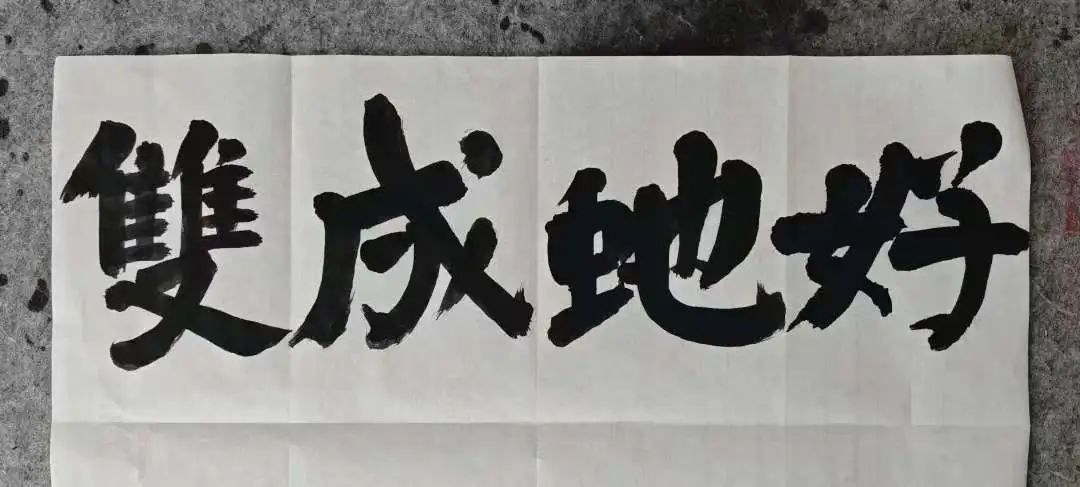 好虵成雙